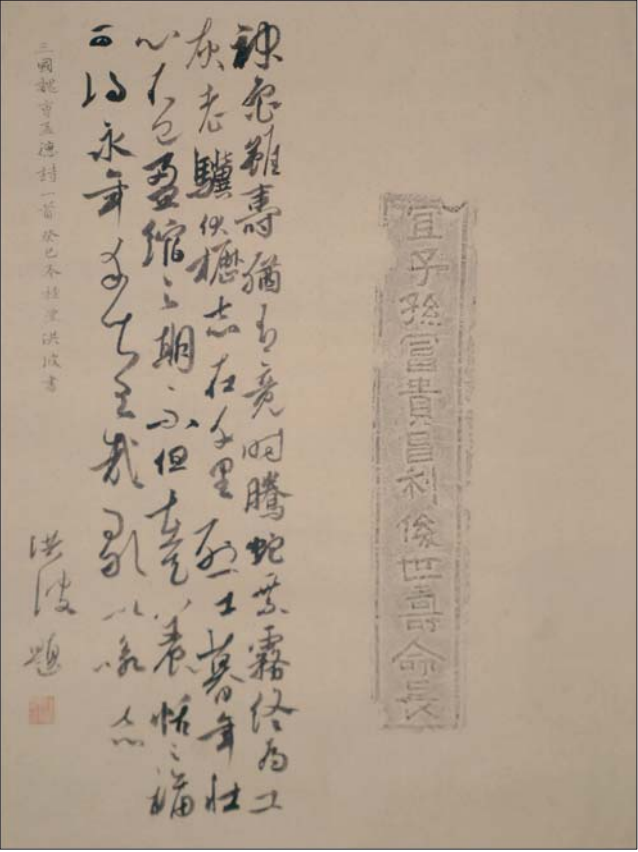 宜子孫富貴昌利後世壽命長
神龜雖壽猶有竟時騰蛇乘霧終為土
灰老驥伏櫪志在千里烈士暮年壯
心不已盈縮之期不但在天養怡之福
可得永年幸甚至哉歌以詠志
三國魏曹孟德詩一首癸巳冬桂洪波書
洪波題